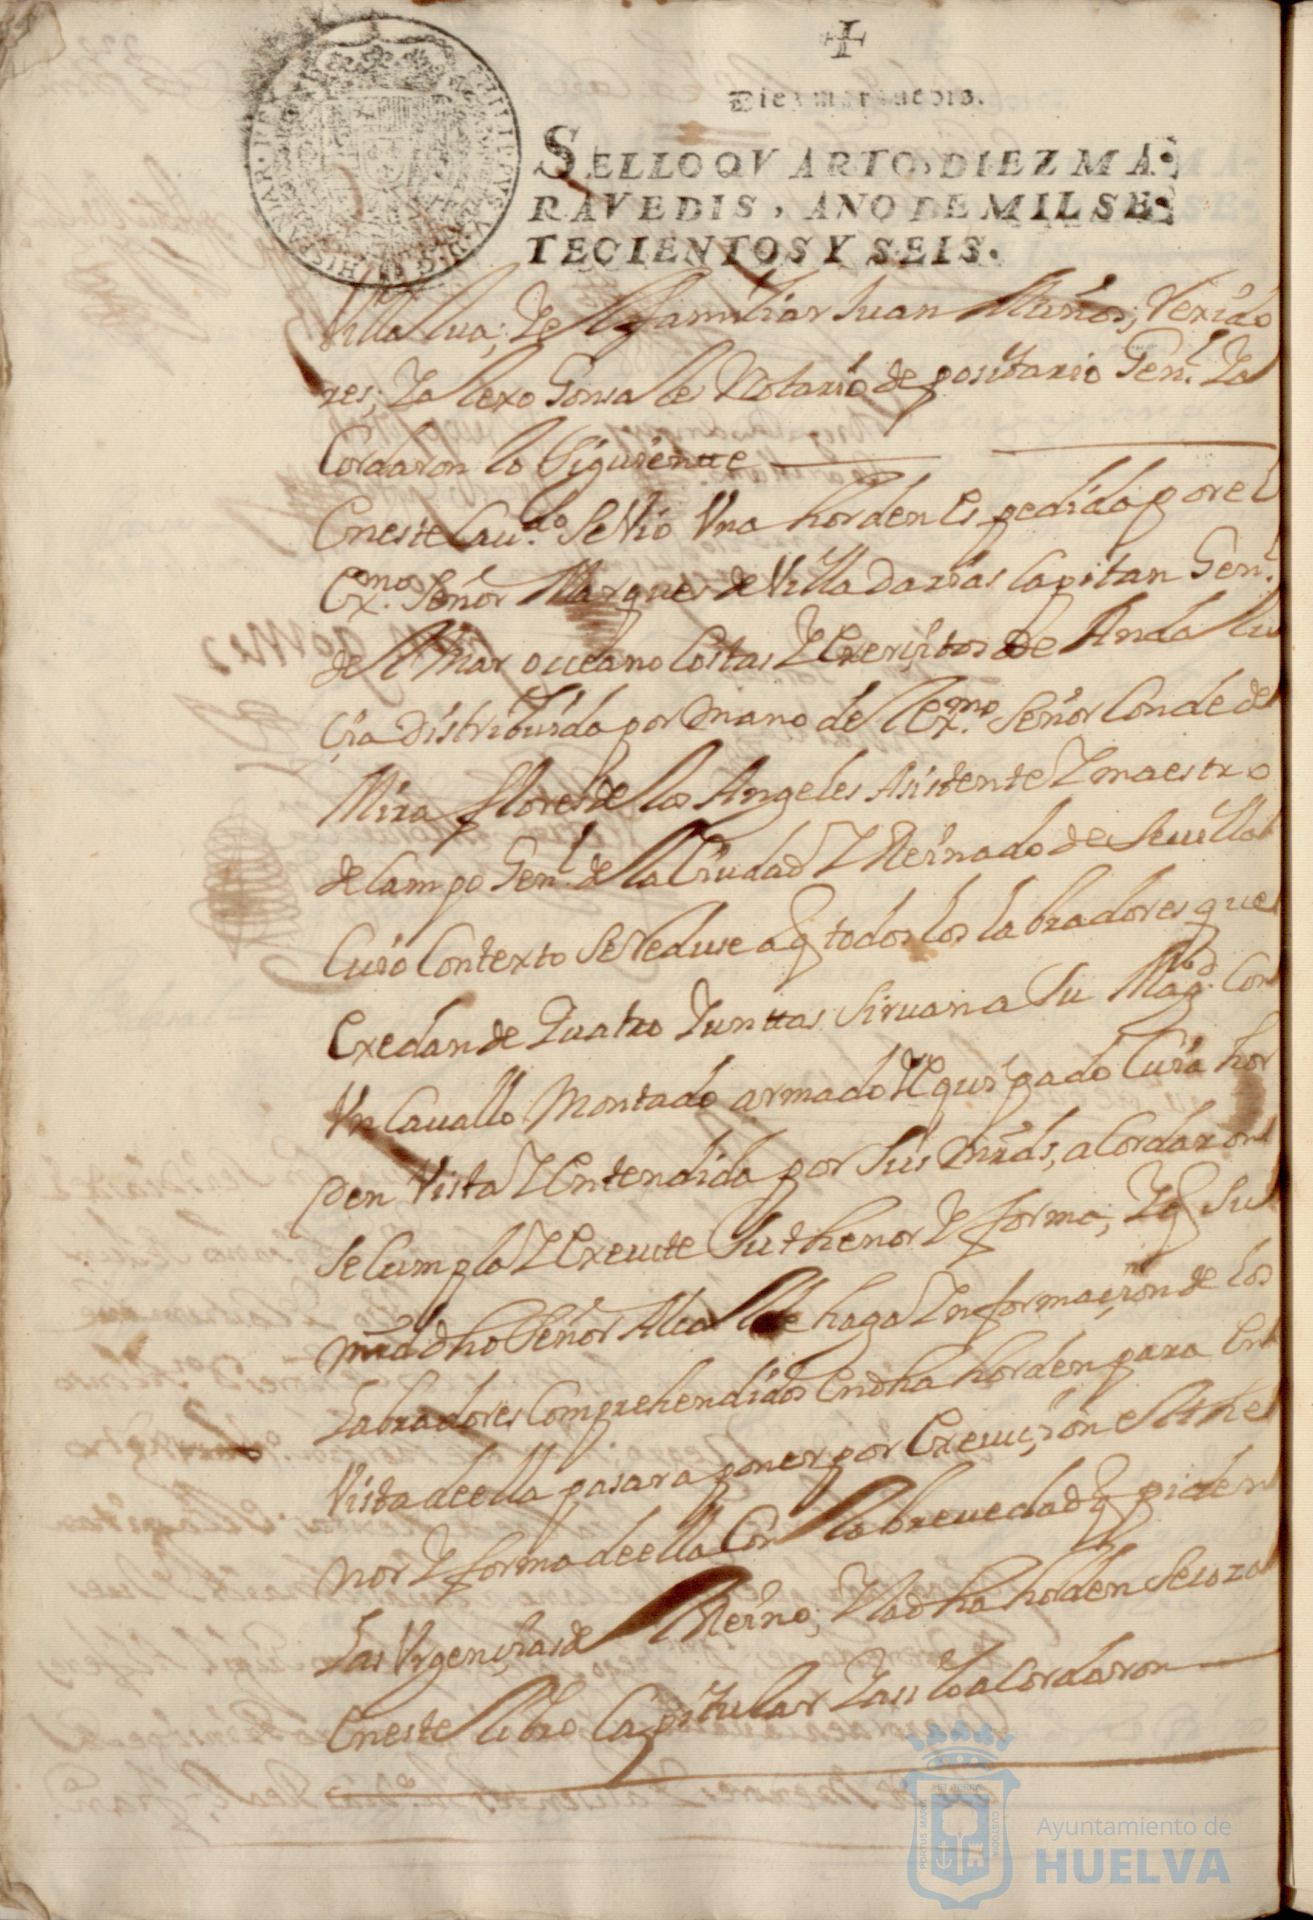 Diez marauedis.
SELLO QVARTO, DIEZ MA-
RAVEDIS, AÑO DE MIL SE-
TECIENTOS Y SEIS.
PHILIPPVS V D G HISPANIAR REX
Villalua; Y el familiar Juan Muños; Rexido
res; Y Alexo Gonsales Notario depositario Genl. Ya
Cordaron lo Siguientte
En este Caudo. Se Vio Vna horden Espedida por el
Exmo. Señor Marques de Villadarias Capitan Genl.
del Mar occeano Costas Y Exerçitos de Andalu
çia Distribuida por mano del Exmo. Señor Conde de
Miraflores de los Angeles Asistente Y maestro
de Campo Genl. de la Ciudad Y Reinado de Seuilla
Cuio Contexto Se Reduse a q todos los labradores que
Exedan de Quatro Yunttas Siruan a Su Magd. Con
Vn Cauallo Montado armado Y Equipado Cuia hor
den Vista Y Entendida por Sus mrds, aCordaron
Se Cumpla Y Execute Su thenor Y forma; Y q Su
mrd dho Señor Alcalde haga Ynformaçion de los
Labradores Comprehendidos En dha horden para En
Vista de ella pasar a poner por Execuçion el the
nor Y forma de ella Con la breuedad q piden
Las Vrgençias de el Reino; Y la dha horden Se
En este Libro Capitular Y asi lo aCordaron
Ayuntamiento de
HUELVA
PORTUS MARIS ET TERRAE CUSTODIA